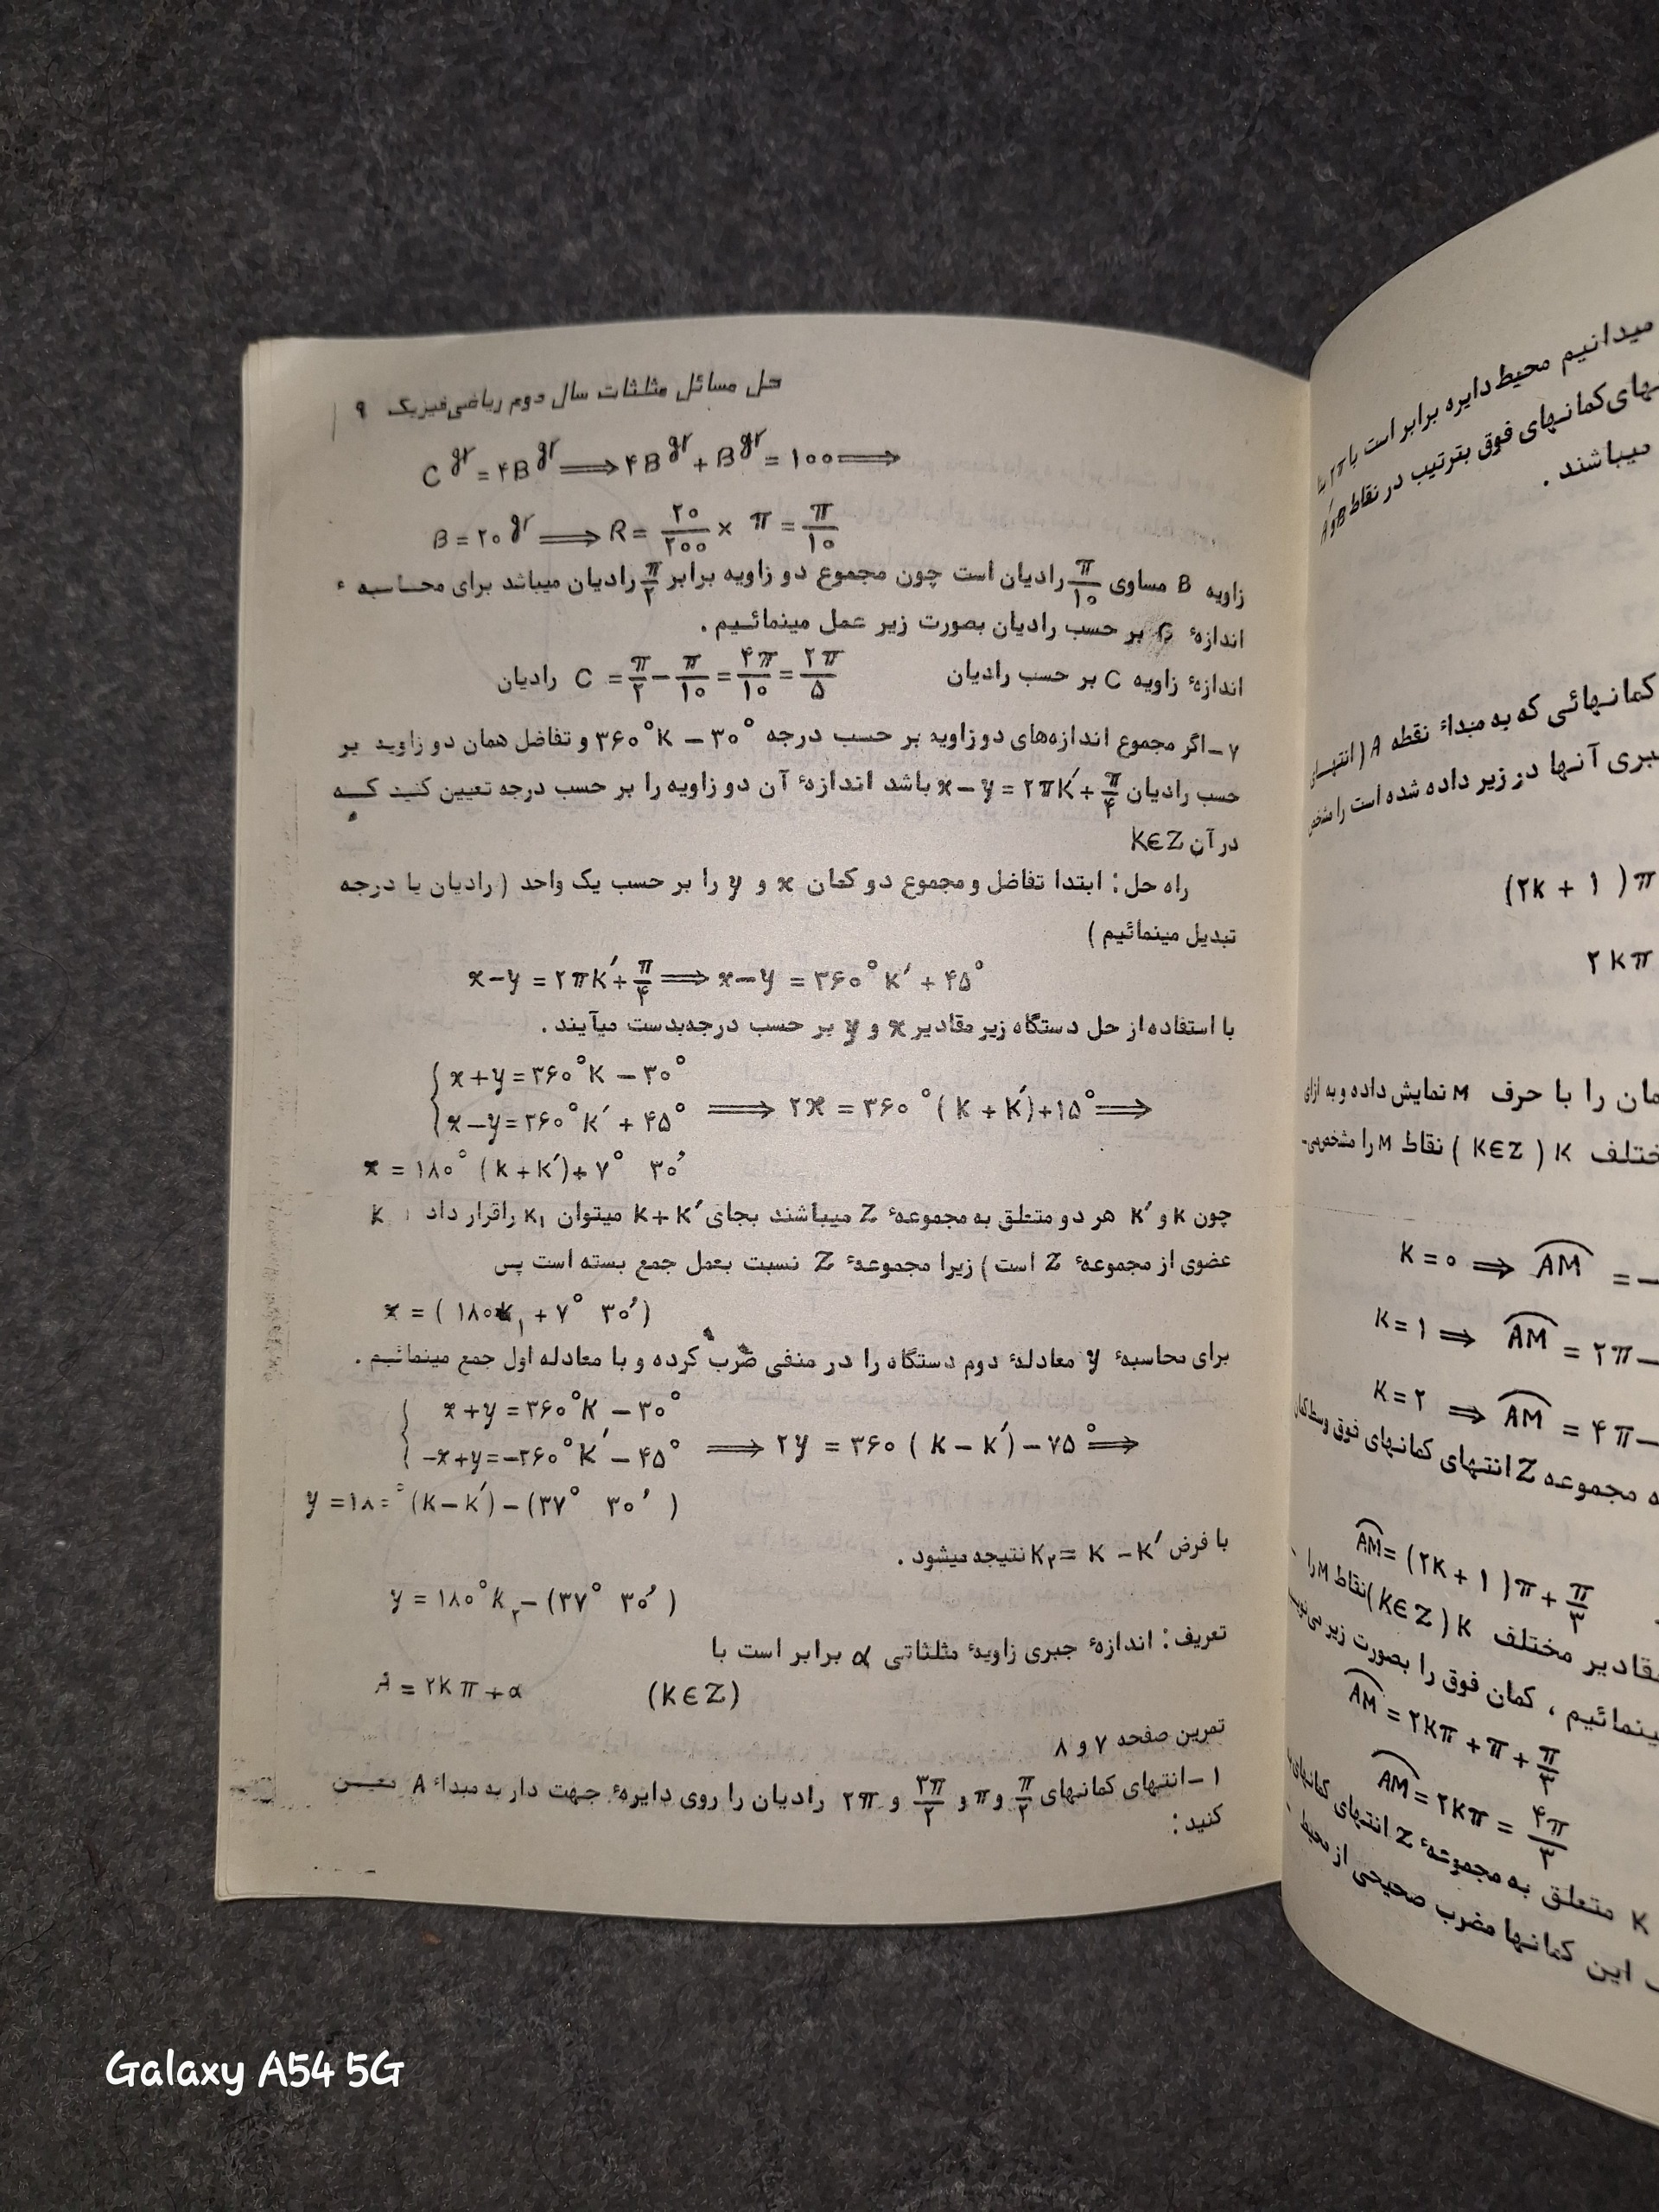 حل مسائل مثلثات سال دوم ریاضی‌فیزیک ۹
C^gr = ۴B^gr ⟹ ۴B^gr + B^gr = ۱۰۰ ⟹
B = ۲۰^gr ⟹ R = ۲۰/۲۰۰ × π = π/۱۰
زاویه B مساوی π/۱۰ رادیان است چون مجموع دو زاویه برابر π/۲ رادیان میباشد برای محاسبه ٔ
اندازهٔ بر حسب رادیان بصورت زیر عمل مینمائیم .
اندازهٔ زاویه C بر حسب رادیان C = π/۲ − π/۱۰ = ۴π/۱۰ = ۲π/۵ رادیان
۷ـ اگر مجموع اندازه‌های دو زاویه بر حسب درجه ۳۶۰°K − ۳۰° و تفاضل همان دو زاویه بر
حسب رادیان x−y = ۲πK′ + π/۴ باشد اندازهٔ آن دو زاویه را بر حسب درجه تعیین کنید کـه
در آن K∈Z
راه حل : ابتدا تفاضل و مجموع دو کمان x و y را بر حسب یک واحد ( رادیان یا درجه
تبدیل مینمائیم )
x−y = ۲πK′ + π/۴ ⟹ x−y = ۳۶۰°K′ + ۴۵°
با استفاده از حل دستگاه زیر مقادیر x و y بر حسب درجه‌بدست میآیند .
x+y = ۳۶۰°K − ۳۰°
x−y = ۳۶۰°K′ + ۴۵° ⟹ ۲x = ۳۶۰°(K + K′) + ۱۵° ⟹
x = ۱۸۰° (K+K′) + ۷° ۳۰′
چون K و K′ هر دو متعلق به مجموعهٔ Z میباشند بجای K+K′ میتوان K₁ راقرار داد K
عضوی از مجموعهٔ Z است ) زیرا مجموعهٔ Z نسبت بعمل جمع بسته است پس
x = ( ۱۸۰K₁ + ۷° ۳۰′)
برای محاسبهٔ y معادلهٔ دوم دستگاه را در منفی ضرب کرده و با معادله اول جمع مینمائیم .
x+y = ۳۶۰°K − ۳۰°
−x+y = −۳۶۰°K′ − ۴۵° ⟹ ۲y = ۳۶۰ ( K − K′) − ۷۵° ⟹
y = ۱۸=° (K−K′) − (۳۷° ۳۰′ )
با فرض K₂ = K − K′ نتیجه میشود .
y = ۱۸۰°K₂ − (۳۷° ۳۰′ )
تعریف : اندازهٔ جبری زاویهٔ مثلثاتی α برابر است با
A = ۲Kπ + α (K∈Z)
تمرین صفحه ۷ و ۸
۱ـ انتهای کمانهای π/۲ و π و ۳π/۲ و ۲π رادیان را روی دایرهٔ جهت دار به مبداٴ A معـین
کنید :
میدانیم محیط دایره برابر است با ۲π
نهای کمانهای فوق بترتیب در نقاط B و A′
میباشند .
کمانهائی که به مبداٴ نقطه A ( انتهـای
بری آنها در زیر داده شده است را
(۲K + ۱ )π
۲Kπ
مان را با حرف M نمایش داده و به ازای
ختلف K ( K∈Z ) نقاط M را
K = ۰ ⟹ AM = −
K = ۱ ⟹ AM = ۲π −
K = ۲ ⟹ AM = ۴π −
ه مجموعه Z انتهای کمانهای فوق وسط کمان
AM = (۲K + ۱ )π + π/۳
قادیر مختلف K ( K∈Z ) نقاط M را
ینمائیم ، کمان فوق را بصورت زیر
AM = ۲Kπ + π + π/۳
AM = ۲Kπ = ۴π/۳
K متعلق به مجموعهٔ Z انتهای کمانهای
این کمانها مضرب صحیحی از محیط
Galaxy A54 5G